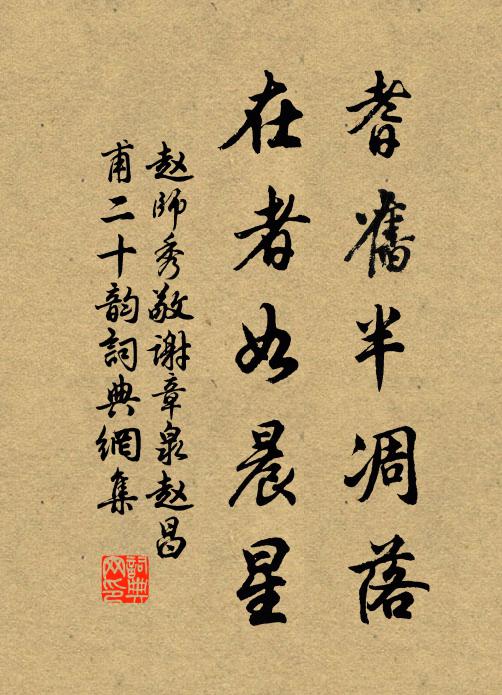 耆舊半凋落
在者如晨星
赵師秀敬谢章泉赵昌
甫二十韵詞典網集
詞典网印